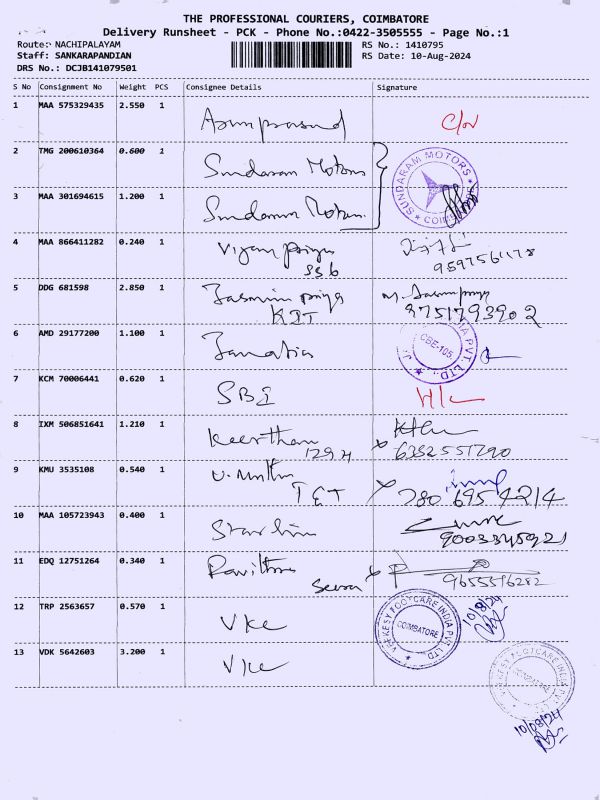 THE PROFESSIONAL COURIERS, COIMBATORE
Delivery Runsheet - PCK - Phone No.:0422-3505555 - Page No.:1
Route: NACHIPALAYAM
RS No.: 1410795
Staff: SANKARAPANDIAN
RS Date: 10-Aug-2024
DRS No.: DCJB141079501
S No Consignment No Weight PCS Consignee Details Signature
1 MAA 575329435 2.550 1
2 TMG 200610364 0.600 1 Sundaram Motors
SUNDARAM MOTORS
3 MAA 301694615 1.200 1 Sundaram Motors
4 MAA 866411282 0.240 1 Vijayapriya
5 DDG 681598 2.850 1 Jasmin priya
KIT 9751793902
6 AMD 29177200 1.100 1
CBE-105
PVT. LTD.
7 KCM 70006441 0.620 1 SBI
8 IXM 506851641 1.210 1 Keerthan
6382551790
9 KMU 3535108 0.540 1
10 MAA 105723943 0.400 1
9003345921
11 EDQ 12751264 0.340 1 Pavithra
9655516282
12 TRP 2563657 0.570 1 Vkc
VEEKESY FOOTCARE INDIA PVT. LTD
COIMBATORE
10/8/24
13 VDK 5642603 3.200 1 Vkc
VEEKESY FOOTCARE INDIA PVT. LTD
COIMBATORE
10/08/24